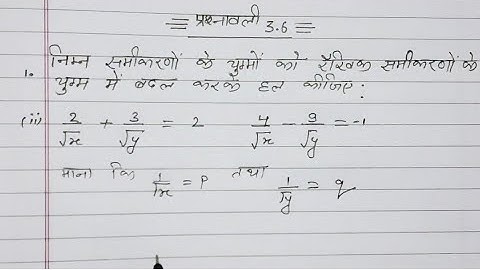 = प्रश्नावली 3.6 =
1. निम्न समीकरणों के युग्मों को रैखिक समीकरणों के
युग्म में बदल करके हल कीजिए:
(ii) 2/√x + 3/√y = 2    4/√x - 9/√y = -1
माना कि 1/√x = P तथा 1/√y = q